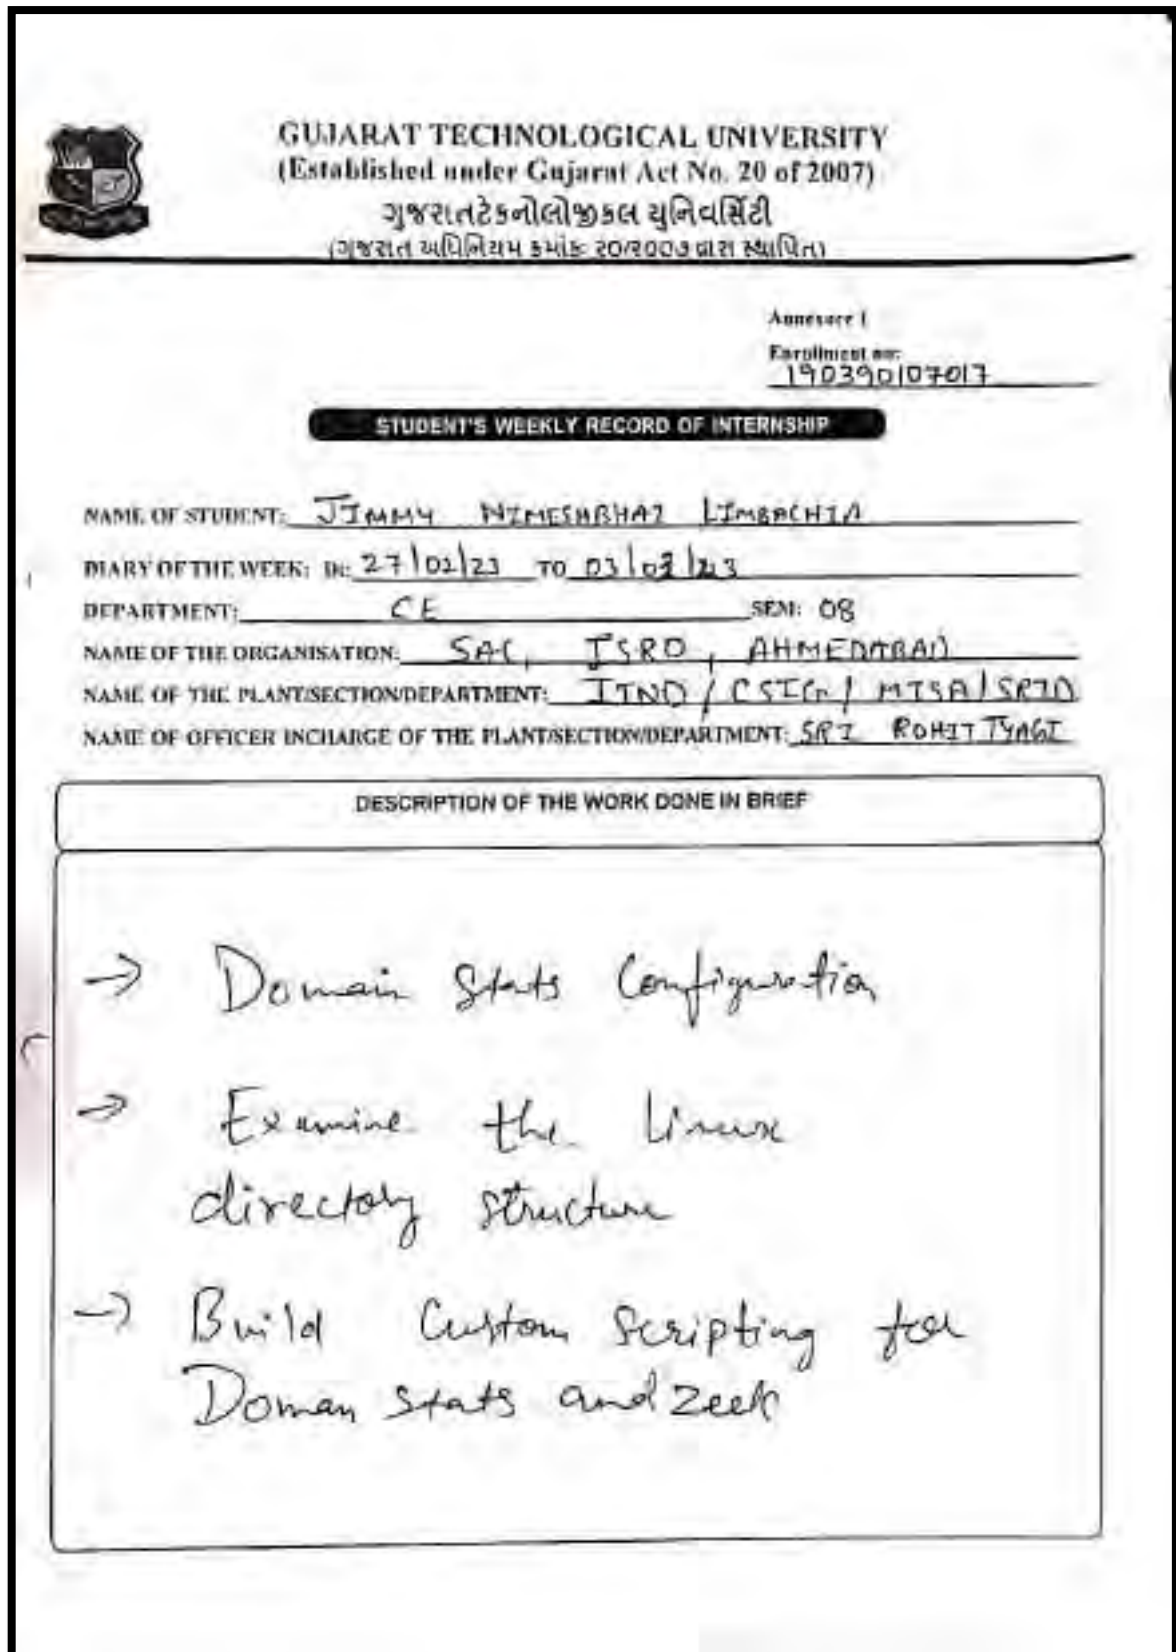 GUJARAT TECHNOLOGICAL UNIVERSITY
(Established under Gujarat Act No. 20 of 2007)
ગુજરાતટેકનોલોજીકલ યુનિવર્સિટી
(ગુજરાત અધિનિયમ ક્રમાંક: ૨૦/૨૦૦૭ દ્વારા સ્થાપિત)
Annexure 1
Enrollment no:
190390107017
STUDENT'S WEEKLY RECORD OF INTERNSHIP
NAME OF STUDENT: JIMMY NIMESHBHAI LIMBACHIA
DIARY OF THE WEEK: Dt: 27/02/23 TO 03/03/23
DEPARTMENT: CE SEM: 08
NAME OF THE ORGANISATION: SAC, ISRO, AHMEDABAD
NAME OF THE PLANT/SECTION/DEPARTMENT: ITND / CSIG / MISA / SRID
NAME OF OFFICER INCHARGE OF THE PLANT/SECTION/DEPARTMENT: SRI ROHIT TYAGI
DESCRIPTION OF THE WORK DONE IN BRIEF
→ Domain Stats Configuration
→ Examine the Linux
directory structure
→ Build Custom Scripting for
Doman stats and zeek